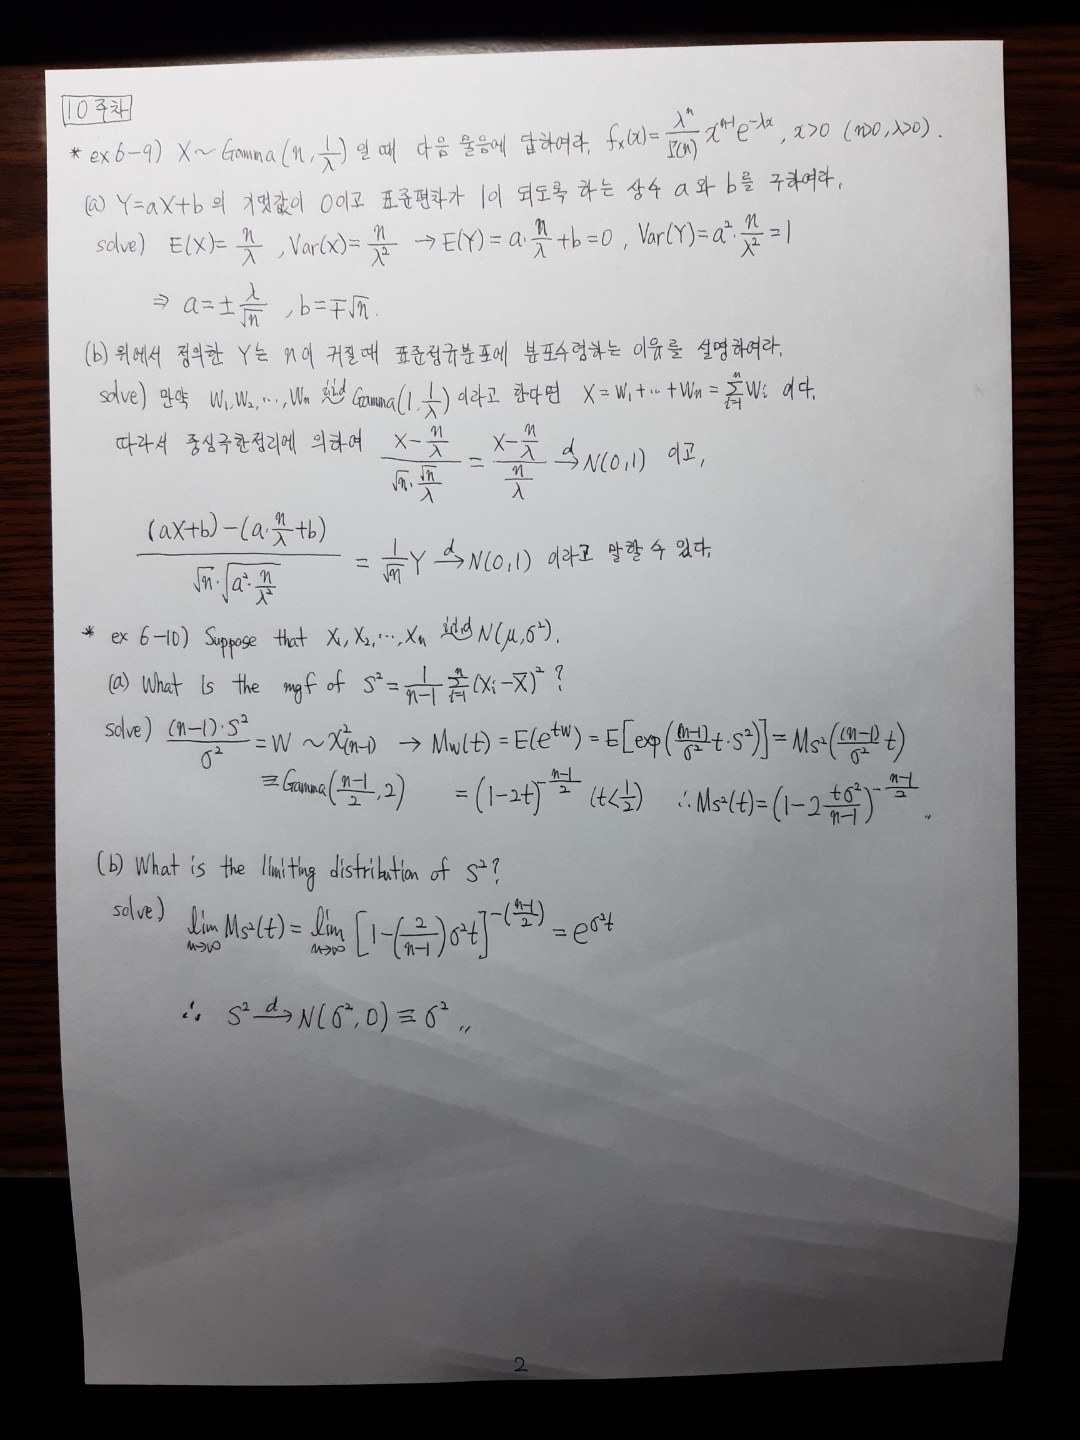 10주차
* ex 6-9) X ~ Gamma(n, 1/λ) 일 때 다음 물음에 답하여라. fx(x) = λⁿ/Γ(n) xⁿ⁻¹e^(-λx), x>0 (n>0, λ>0).
(a) Y=aX+b 의 기댓값이 0이고 표준편차가 1이 되도록 하는 상수 a 와 b를 구하여라.
solve) E(X)= n/λ , Var(X)= n/λ² → E(Y)= a·n/λ+b=0 , Var(Y)=a²·n/λ²=1
⇒ a=± λ/√n , b=∓√n.
(b) 위에서 정의한 Y는 n이 커질 때 표준정규분포에 분포수렴하는 이유를 설명하여라.
solve) 만약 W₁,W₂,⋯,Wn iid Gamma(1, 1/λ) 이라고 한다면 X=W₁+⋯+Wn = Σ(i=1→n) Wi 이다.
따라서 중심극한정리에 의하여 (X - n/λ)/(√n·√n/λ) = (X - n/λ)/(n/λ) →d N(0,1) 이고,
((aX+b)-(a·n/λ+b))/(√n·√(a²·n/λ²)) = 1/√n Y →d N(0,1) 이라고 말할 수 있다.
* ex 6-10) Suppose that X₁, X₂, ⋯, Xn iid N(μ,σ²).
(a) What is the mgf of S² = 1/(n-1) Σ(i=1→n) (Xi-X̄)² ?
solve) (n-1)·S²/σ² = W ~ χ²(n-1) → Mw(t) = E(e^(tw)) = E[exp((n-1)/σ² t·S²)] = Ms²((n-1)/σ² t)
≡ Gamma((n-1)/2, 2) = (1-2t)^(-(n-1)/2) (t<1/2) ∴ Ms²(t) = (1-2 tσ²/(n-1))^(-(n-1)/2) 〃
(b) What is the limiting distribution of S²?
solve) lim(n→∞) Ms²(t) = lim(n→∞) [1-(2/(n-1))σ²t]^(-((n-1)/2)) = e^(σ²t)
∴ S² →d N(σ², 0) ≡ σ² 〃
2